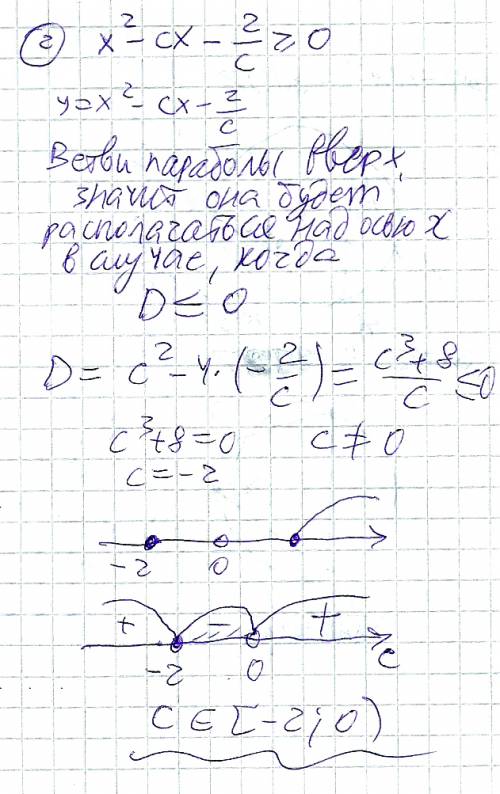 2) x² - cx - 2/c ≥ 0
y = x² - cx - 2/c
Ветви параболы вверх,
значит она будет
располагаться над осью x
в случае, когда
D ≤ 0
D = c² - 4·(-2/c) = (c³+8)/c ≤ 0
c³+8=0 c ≠ 0
c = -2
-2 0
+ - +
-2 0 c
c ∈ [-2; 0)